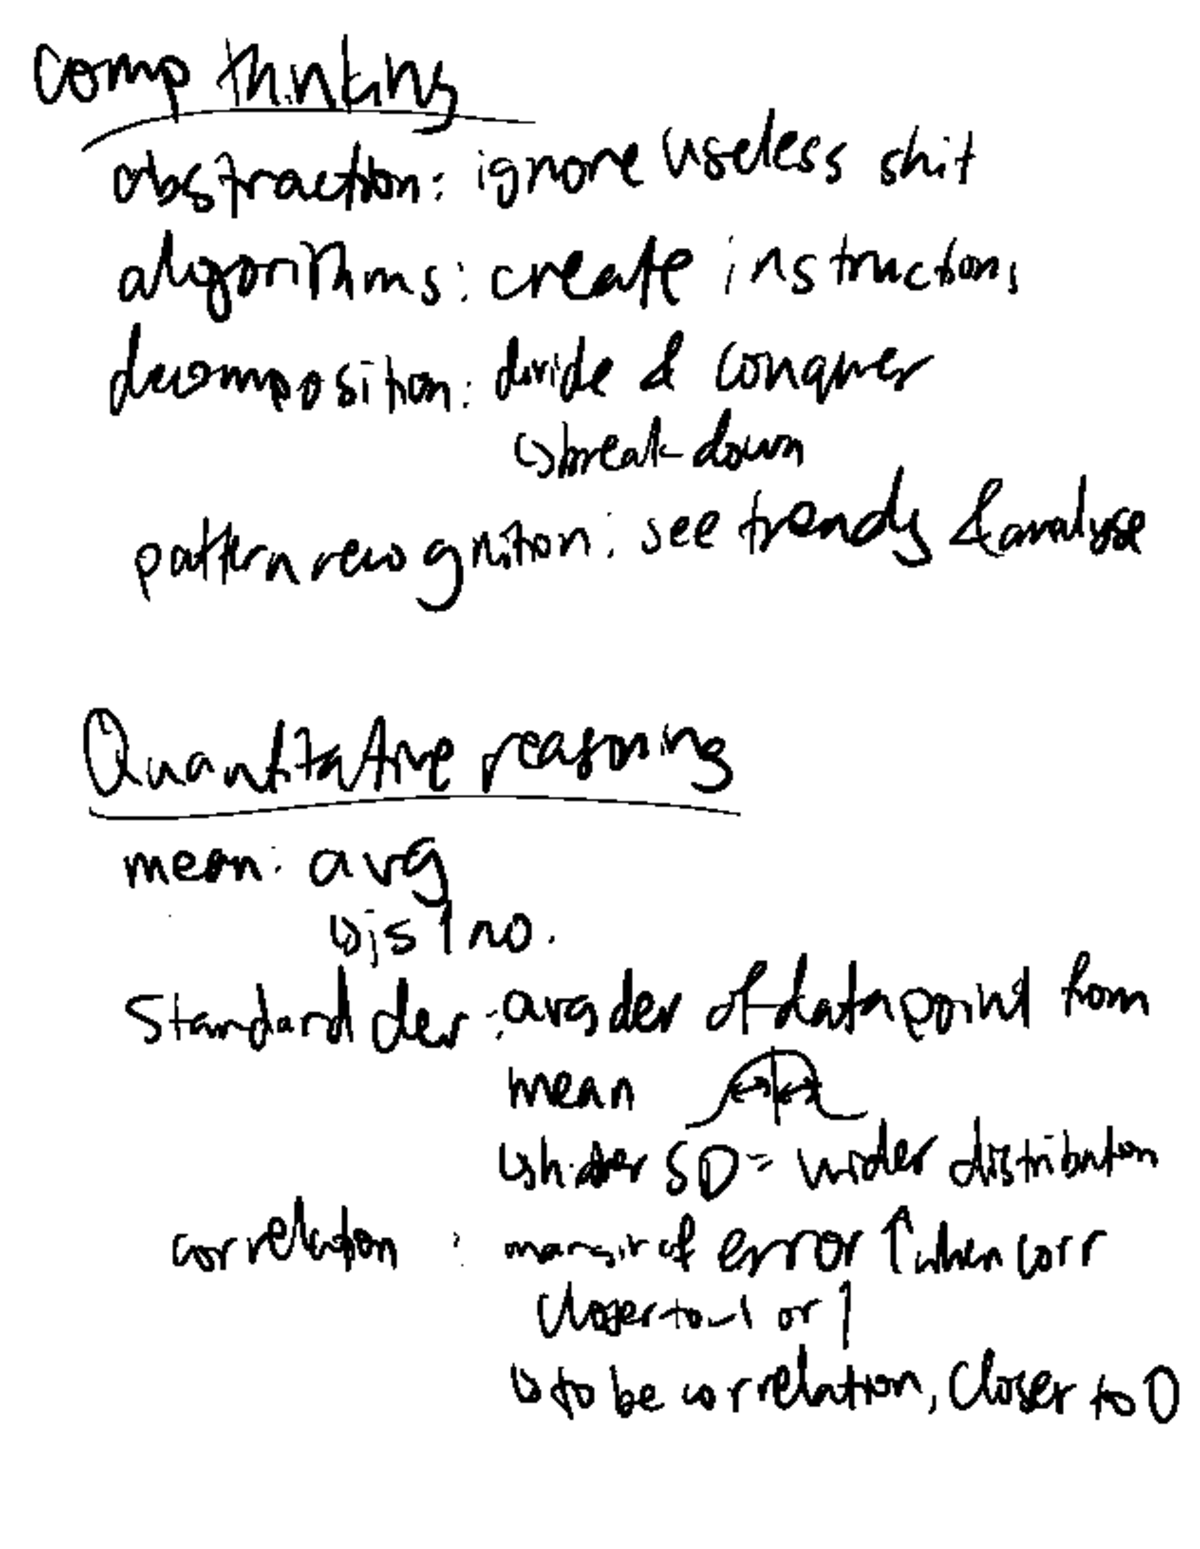 comp thinking
abstraction: ignore useless shit
algorithms: create instructions
decomposition: divide & conquer
↳ break down
pattern recognition: see trends & analyse
Quantitative reasoning
mean: avg
↳ is 1 no.
Standard dev: avg dev of data point from
mean
↳ higher SD = wider distribution
correlation: margin of error ↑ when corr
closer to -1 or 1
↳ to be correlation, closer to 0